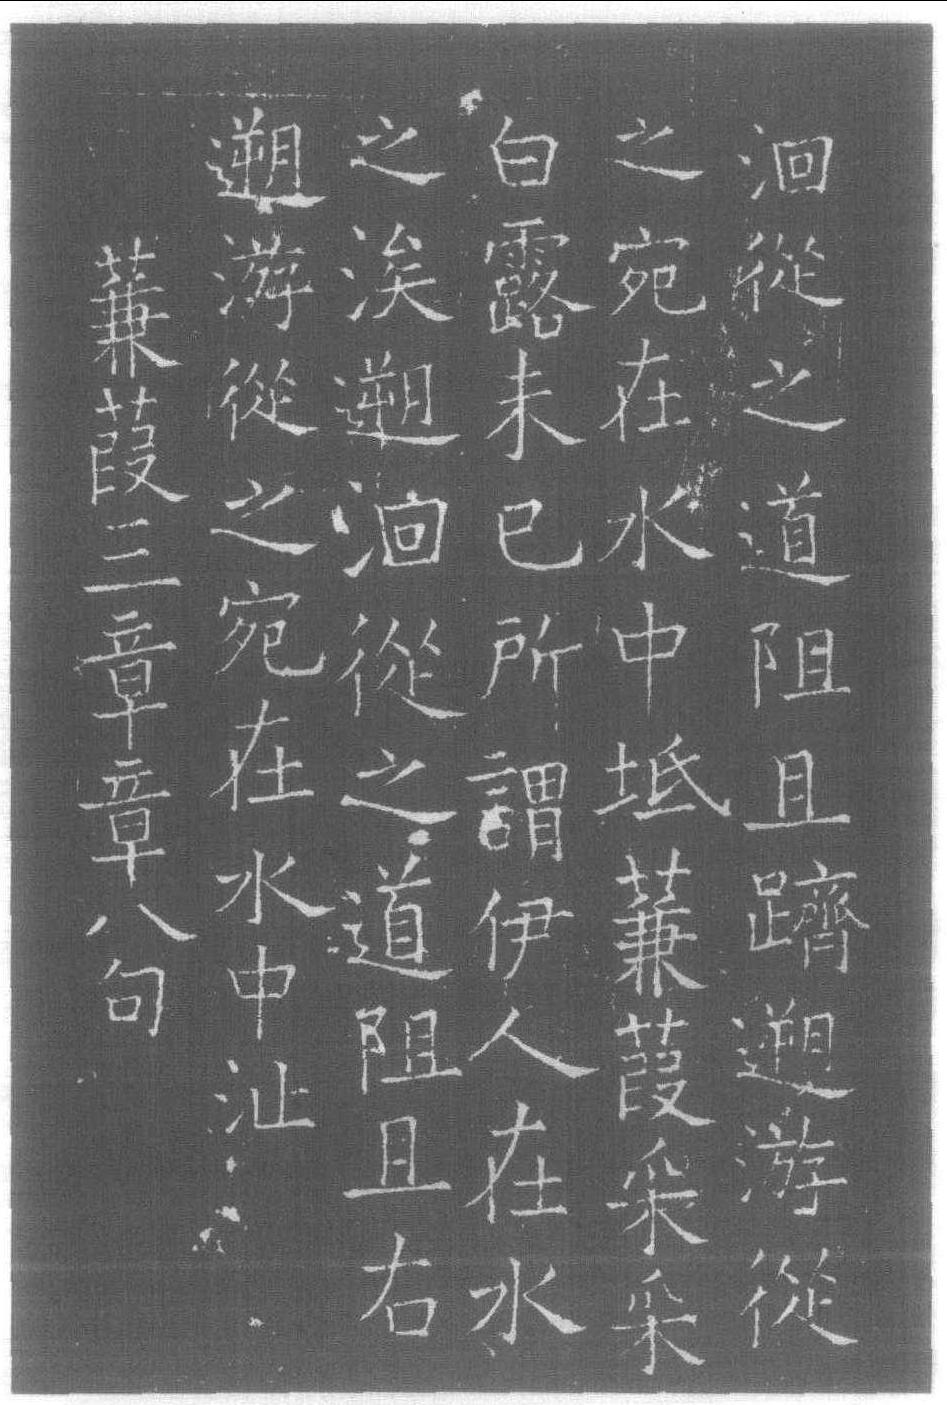 洄從之道阻且躋遡游從
之宛在水中坻蒹葭采采
白露未已所謂伊人在水
之涘遡洄從之道阻且右
遡游從之宛在水中沚
蒹葭三章章八句